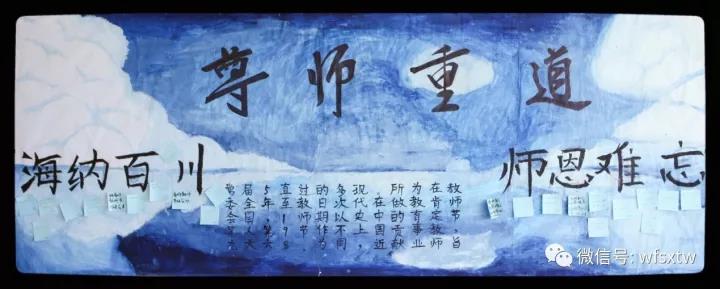 尊师重道
海纳百川
师恩难忘
教师节，旨
在肯定教师
为教育事业
所做的贡献
。在中国近
现代史上，
多次以不同
的日期作为
过教师节.
直至198
5年，第六
届全国人大
常委会第九
微信号: wfsxtw